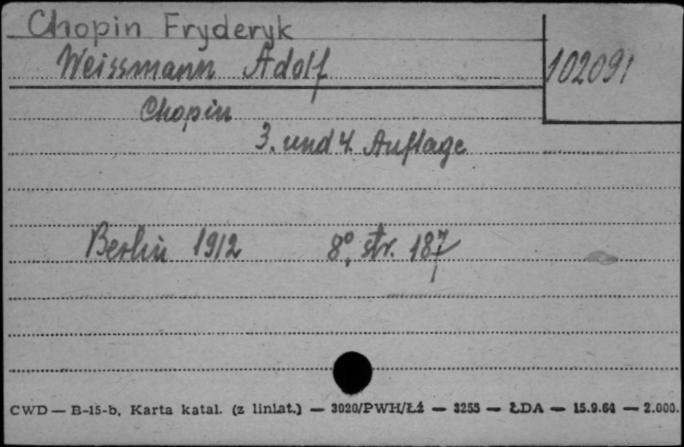 Chopin Fryderyk
Weissmann Adolf
102091
Chopin
3. und 4. Auflage
Berlin 1912 8°, str. 187
CWD — B-15-b, Karta katal. (z liniat.) — 3020/PWH/Łź — 3255 — ŁDA — 15.9.64 — 2.000.